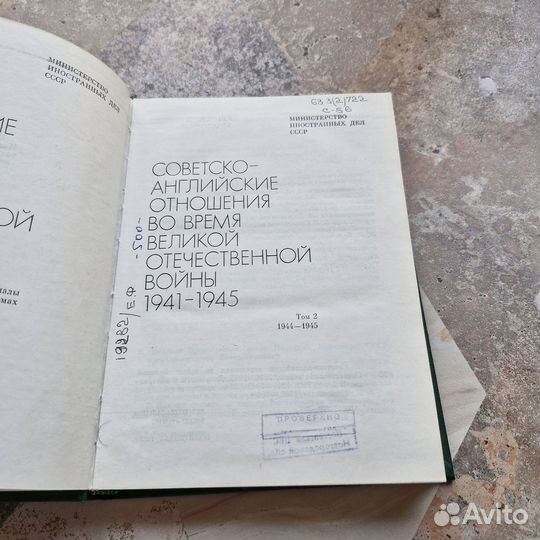 МИНИСТЕРСТВО
ИНОСТРАННЫХ ДЕЛ
СССР
ИЕ
ОЙ
мах
63.3(2)722
С-56
МИНИСТЕРСТВО
ИНОСТРАННЫХ ДЕЛ
СССР
СОВЕТСКО-
АНГЛИЙСКИЕ
ОТНОШЕНИЯ
ВО ВРЕМЯ
ВЕЛИКОЙ
ОТЕЧЕСТВЕННОЙ
ВОЙНЫ
1941-1945
Том 2
1944—1945
ПРОВЕРЕНО
Avito